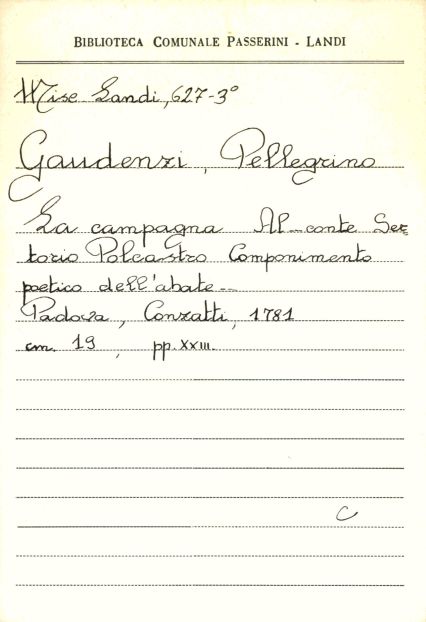 BIBLIOTECA COMUNALE PASSERINI - LANDI
Mise Landi, 627-3°
Gaudenzi, Pellegrino
La campagna Al conte Ser-
torio Polcastro Componimento
poetico dell'abate --
Padova, Conzatti, 1781
cm. 19, pp. XXIII.
C